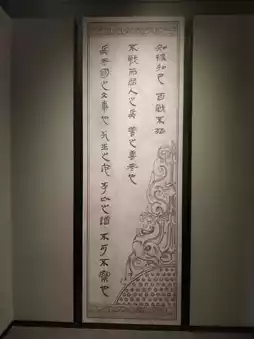 知彼知己 百戰不殆
不戰而屈人之兵 善之善者也
兵者國之大事也 死生之地 存亡之道 不可不察也